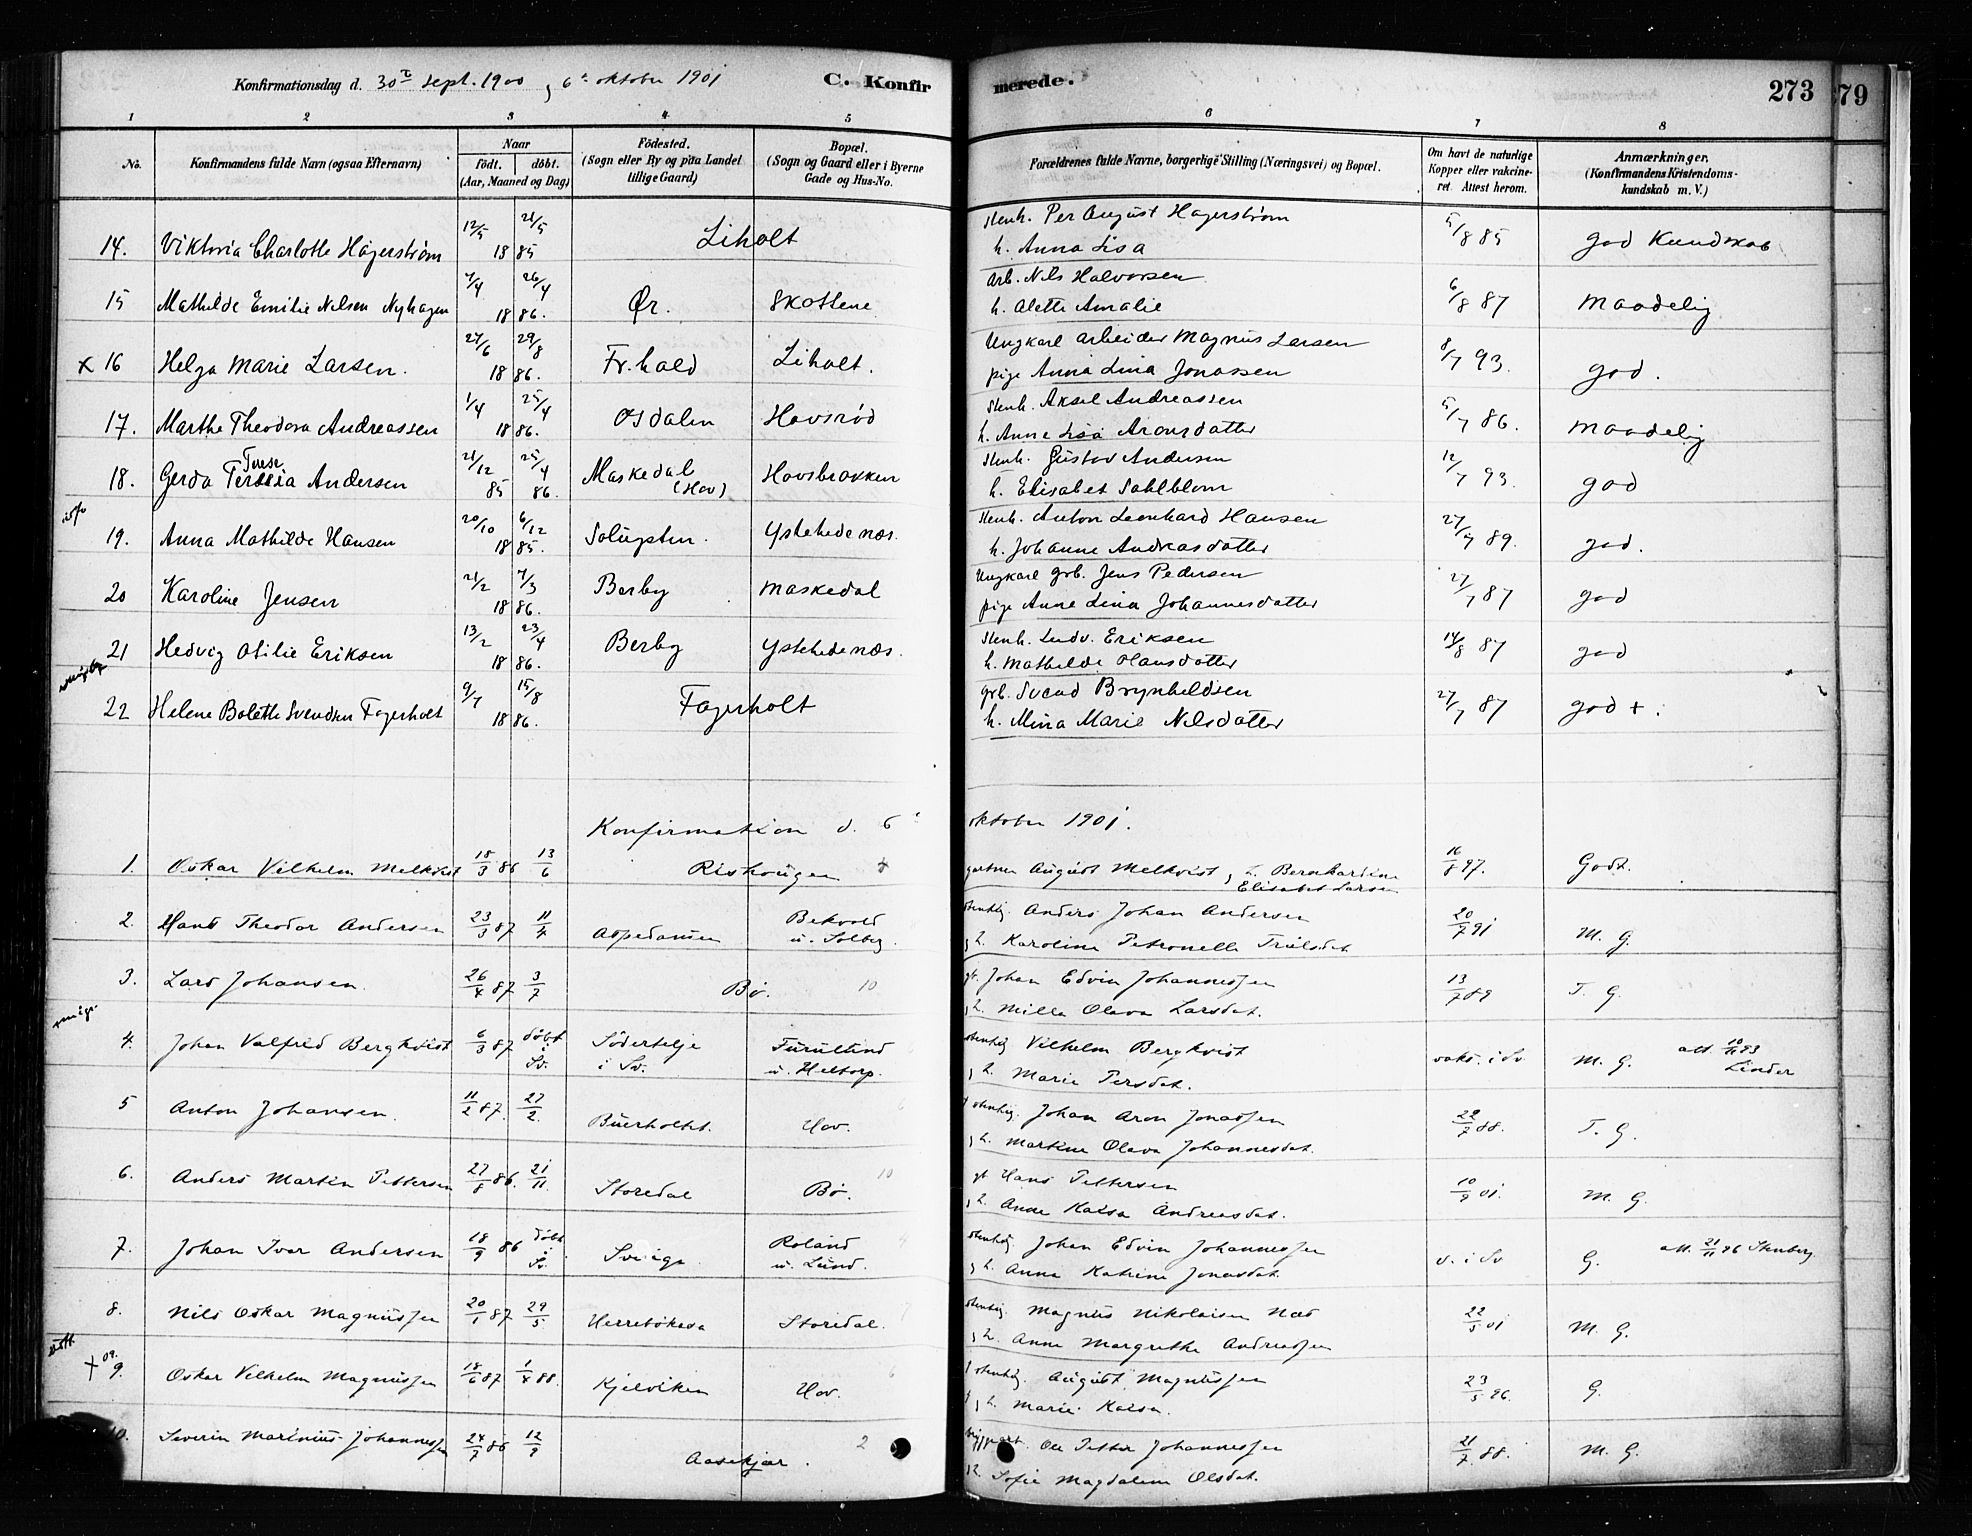 Konfirmationsdag d. 30te Sept. 1900, 6te oktober 1901 C. Konfir merede. 273 79
1 2 3 4 5 6 7 8
No. Konfirmandens fulde Navn (ogsaa Efternavn) Naar født. døbt. (Aar, Maaned og Dag) Födested. (Sogn eller By og paa Landet tillige Gaard) Bopæl. (Sogn og Gaard eller i Byerne Gade og Hus-No. Forældrenes fulde Navne, borgerlige Stilling (Næringsvei) og Bopæl. Om havt de naturlige Kopper eller vakcineret. Attest herom. Anmærkninger. (Konfirmandens Kristendomskundskab m. V.)
14. Viktoria Charlotte Hägerström 12/5 21/5 1885 Liholt Stenh. Per August Hagerström
h. Anna Lisa 5/8 85 god Kundskab
15 Mathilde Emilie Nilsen Nyhagen 7/4 26/4 1886. Ør. Skottene arb. Nils Halvorsen
h. Alette Amalie 6/8 87 maadelig
x 16 Helga Marie Larsen. 27/6 29/8 1886. Fr.hald Liholt. Ungkarl arbeider Magnus Larsen
pige Anna Lina Jonassen 8/7 93. god.
17. Marthe Theodora Andreassen 1/4 25/4 1886. Osdalen Hovsrød Stenh. Aksel Andreassen
h. Anne Lisa Aronsdatter 5/7 86. maadelig
18. Gerda Terese Andersen 21/12 85 25/4 86. Maskedal (Hov) Hovsbraaten Stenh. Gustav Andersen
h. Elisabet Sahlblom 12/7 93. god
19. Anna Mathilde Hansen 20/10 6/12 1885. Solugsten. Ystehedenæs. Stenh. Anton Leonhard Hansen
h. Johanne Andreasdatter 27/7 89. god.
20 Karoline Jensen 21/2 7/3 1886. Berby Maskedal Ungkarl grb. Jens Pedersen
pige Anne Lina Johannesdatter 27/7 87 god
21 Hedvig Otilie Eriksen 13/2 23/4 1886. Berby Ystehedenæs. Stenh. Ludv. Eriksen
h. Mathilde Hansdatter 14/8 87 god
22 Helene Bolette Svendsen Fagerholt 9/7 15/8 1886. Fagerholt grb. Svend Brynhildsen
h. Mina Marie Nilsdatter 27/7 87 god +.
Konfirmation d. 6te oktober 1901.
1. Oskar Vilhelm Melkvist 18/3 86 13/6 Rishaugen gartner August Melkvist, h. Bernhardine
Elisabet Larsen 16/8 97. Godt.
2. Hans Theodor Andersen 23/3 87 11/4 Aspedamen Bekvold u. Solberg. stenhug. Anders Johan Andersen
, h. Karoline Petronelle Truelsdat. 20/7 91 M. G.
3. Lars Johansen. 26/4 87 3/7 Bø. 10 gb. Johan Edvin Johannessen
, h. Milla Olava Larsdat. 13/7 89 T. G.
4. Johan Valfred Bergkvist 6/3 87 döbt i Sv. Södertelje i Sv. Furulund u. Heltorp. stenhug Vilhelm Bergkvist
, h. Marie Persdat. vaks. i Sv M. G. att. 10/11 93 Linder
5 Anton Johansen. 11/2 87. 27/2. Buerholtet. Hov. stenhug. Johan Aron Jonassen
, h. Martine Olava Johannesdat. 22/7 88. T. G.
6. Anders Martin Pettersen 27/8 86. 21/11. Storedal Bø. 10 gb Hans Pettersen
, h. Anne Kaisa Andreasdat. 10/9 01. M. G.
7. Johan Ivar Andersen 18/9 86 döbt i Sv. Sverige Roland u. Lund. stenhug Johan Edvin Johannessen
, h. Anna Katrine Jonasdat. v. i Sv G. att. 21/11 96 Stenberg
8. Nils Oskar Magnussen 20/1 87 29/5 Herrebökasa Storedal. stenhug. Magnus Nikolaisen Næs
, h. Anne Margrethe Andreassen 22/5 01 M. G.
+ 09. 9. Oskar Vilhelm Magnussen 18/6 87 1/4 88. Kjelviken Hov. stenhug. August Magnussen
, h. Marie Kaisa. 23/5 96. G.
10. Severin Marinius Johannessen 24/7 86 12/9 Aasekjær. 2 Ole Petter Johannessen
h. Sofie Magdalene Olsdat. 21/7 88. M. G.